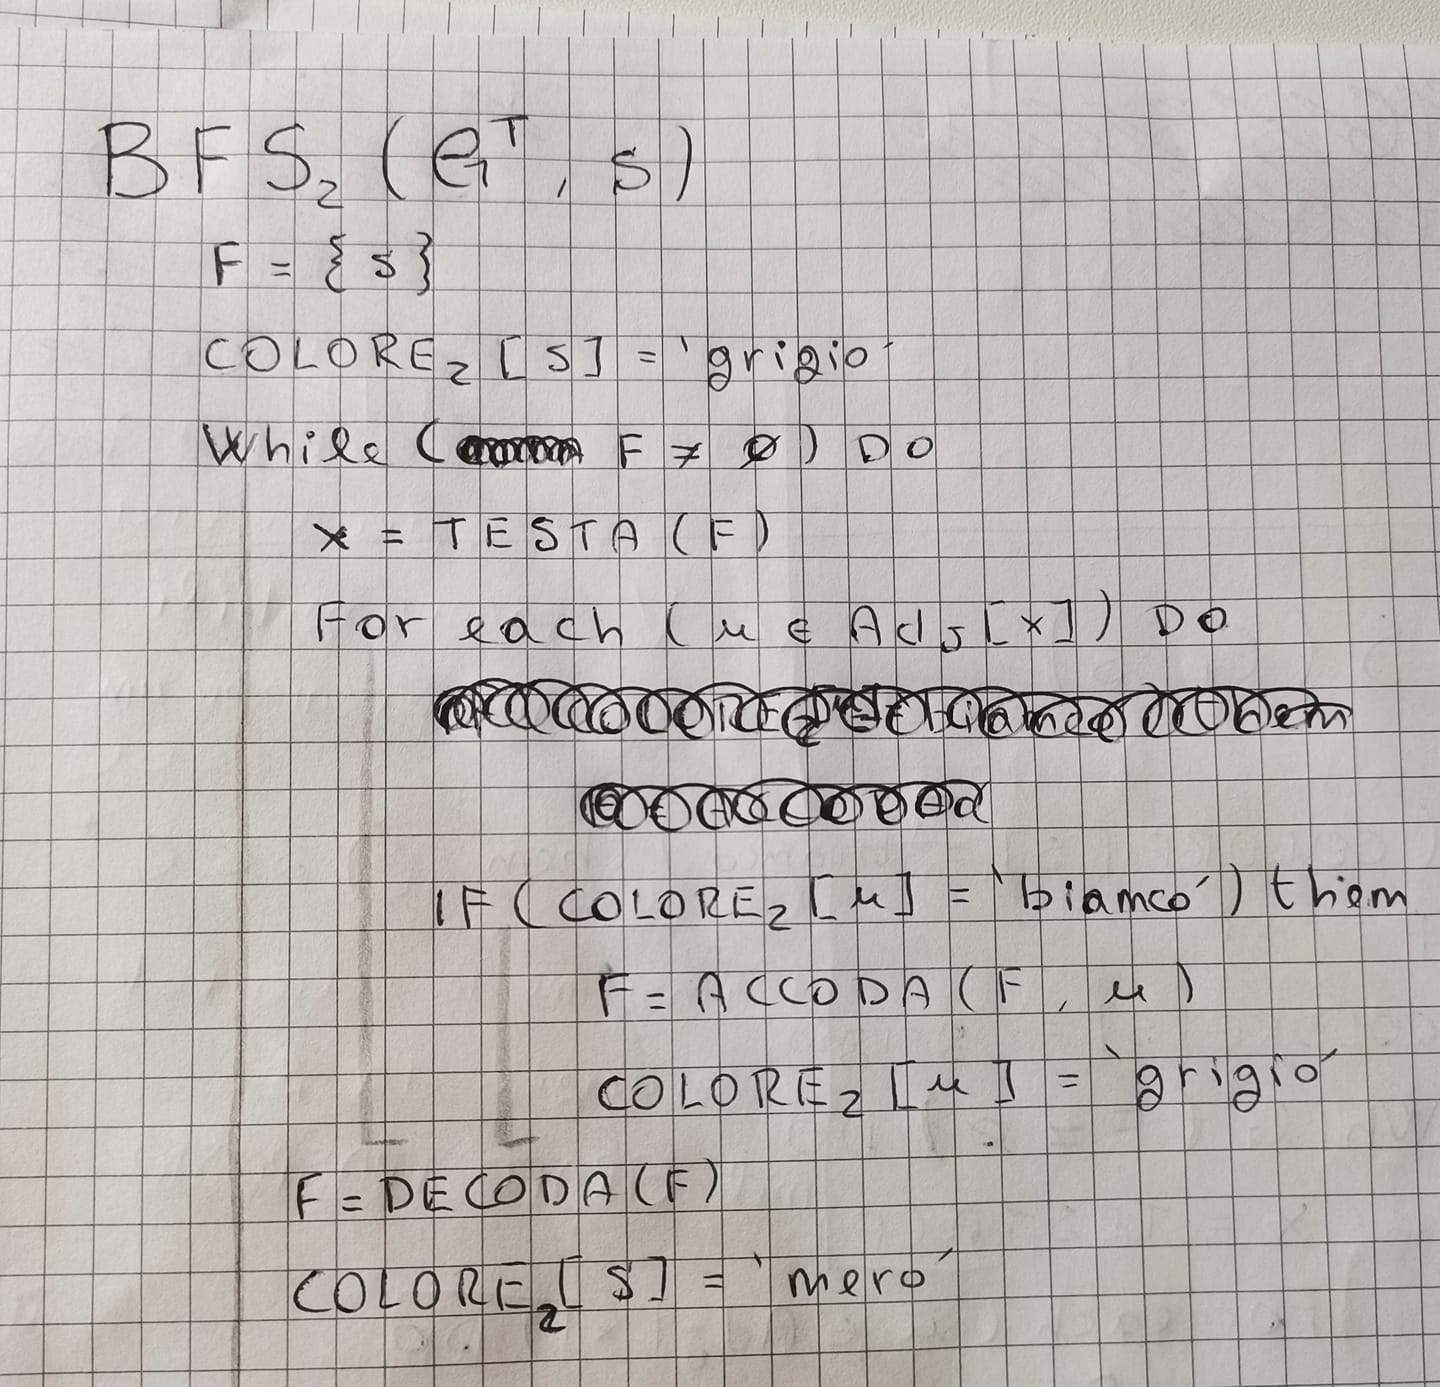 BFS₂ (Gᵀ, s)
F = {s}
COLORE₂ [S] = 'grigio'
While ( F ≠ ∅) DO
x = TESTA (F)
For each (u ∈ Adj[x]) DO
IF (COLORE₂ [u] = 'bianco') then
F = ACCODA (F, u)
COLORE₂ [u] = 'grigio'
F = DECODA(F)
COLORE₂ [S] = 'nero'